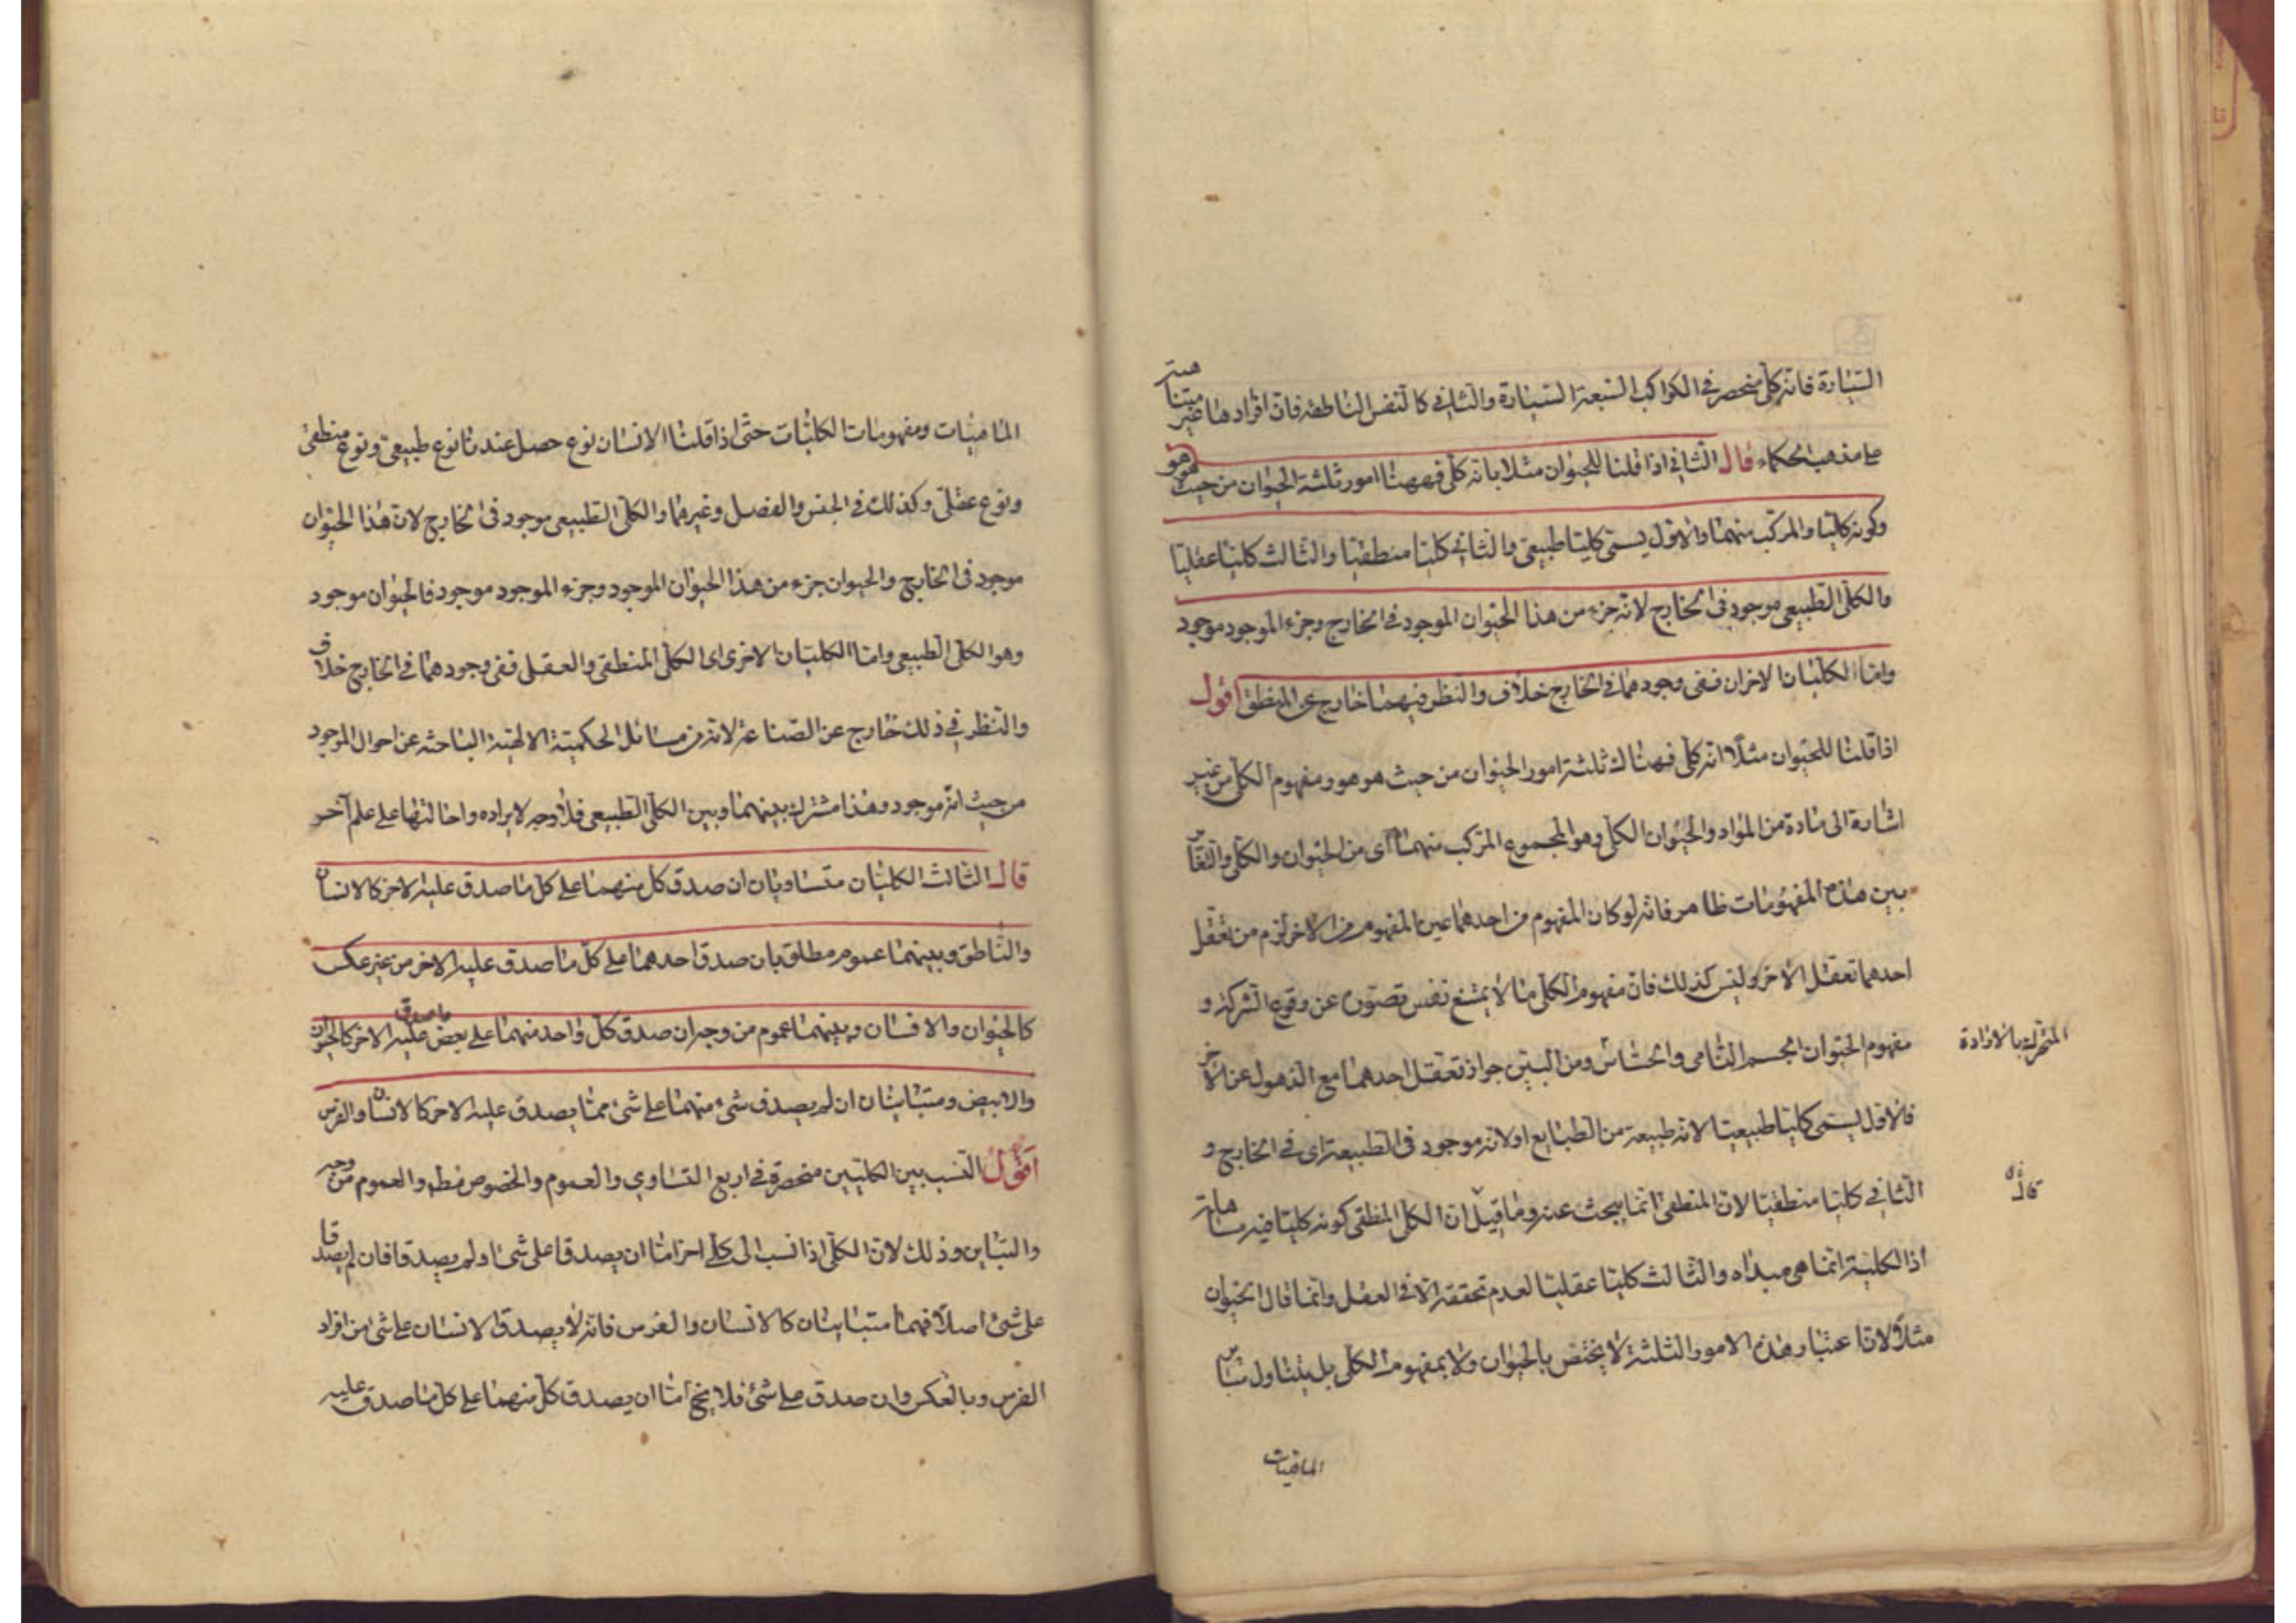 السيارة فانه كلي منحصر في الكواكب السبعة السيارة والثاني كالنفس الناطقة فان افرادها غير متناهية
على مذهب الحكماء قال الثاني اذا قلنا للحيوان مثلا بانه كلي فههنا امور ثلثة الحيوان من حيث هو هو
وكونه كليا والمركب منهما والاول يسمى كليا طبيعي والثاني كليا منطقيا والثالث كليا عقليا
والكلي الطبيعي موجود في الخارج لانه جزء من هذا الحيوان الموجود في الخارج وجزء الموجود موجود
واما الكليان الاخران ففي وجودهما في الخارج خلاف والنظر فيهما خارج عن المنطق اقول
اذا قلنا للحيوان مثلا انه كلي فهناك ثلثة امور الحيوان من حيث هو هو ومفهوم الكلي من غير
اشارة الى مادة من المواد والحيوان الكلي وهو المجموع المركب منهما اي من الحيوان والكلي والتغاير
بين هذه المفهومات ظاهر فانه لو كان المفهوم من احدهما عين المفهوم من الاخر لزم من تعقل
احدهما تعقل الاخر وليس كذلك فان مفهوم الكلي ما لا يمتنع نفس تصوره عن وقوع الشركة و
مفهوم الحيوان الجسم النامي والحساس ومن البين جواز تعقل احدهما مع الذهول عن الاخر
المتحرك بالارادة
فالاول يسمى كليا طبيعيا لانه طبيعة من الطبايع او لانه موجود في الطبيعة اي في الخارج و
الثاني كليا منطقيا لان المنطقي انما يبحث عنه وما قيل ان الكلي المنطقي كونه كليا فيه مساهلة
قال
اذ الكلية انما هي مبداه والثالث كليا عقليا لعدم تحققه الا في العقل وانما قال الحيوان
مثلا لان اعتبار هذه الامور الثلثة لا يختص بالحيوان ولا بمفهوم الكلي بل يتناول ساير
الماهيات
الماهيات ومفهومات الكليات حتى اذا قلنا الانسان نوع حصل عندنا نوع طبيعي ونوع منطقي
ونوع عقلي وكذلك في الجنس والفصل وغيرهما والكلي الطبيعي موجود في الخارج لان هذا الحيوان
موجود في الخارج والحيوان جزء من هذا الحيوان الموجود وجزء الموجود موجود فالحيوان موجود
وهو الكلي الطبيعي واما الكليان الاخرى اي الكلي المنطقي والعقلي ففي وجودهما في الخارج خلاف
والنظر في ذلك خارج عن الصناعة لانه من مسائل الحكمية الالهية الباحثة عن احوال الموجود
من حيث انه موجود وهذا مشترك بينهما وبين الكلي الطبيعي فلا وجه لايراده واحالتها على علم آخر
قال الثالث الكليان متساويان ان صدق كل منهما على كل ما صدق عليه الاخر كالانسان
والناطق وبينهما عموم مطلق بان صدق احدهما على كل ما صدق عليه الاخر من غير عكس
كالحيوان والانسان وبينهما عموم من وجه ان صدق كل واحد منهما على بعض ما صدق عليه الاخر كالحيوان
والابيض ومتباينان ان لم يصدق شيء منهما على شيء مما يصدق عليه الاخر كالانسان والفرس
اقول النسب بين الكليين منحصرة في اربع التساوي والعموم والخصوص مطلقا والعموم من وجه
والتباين وذلك لان الكلي اذا نسب الى كلي اخر اما ان يصدقا على شيء او لم يصدقا فان لم يصدقا
على شيء اصلا فهما متباينان كالانسان والفرس فانه لا يصدق الانسان على شيء من افراد
الفرس وبالعكس وان صدق على شيء فلا يخ اما ان يصدق كل منهما على كل ما صدق عليه